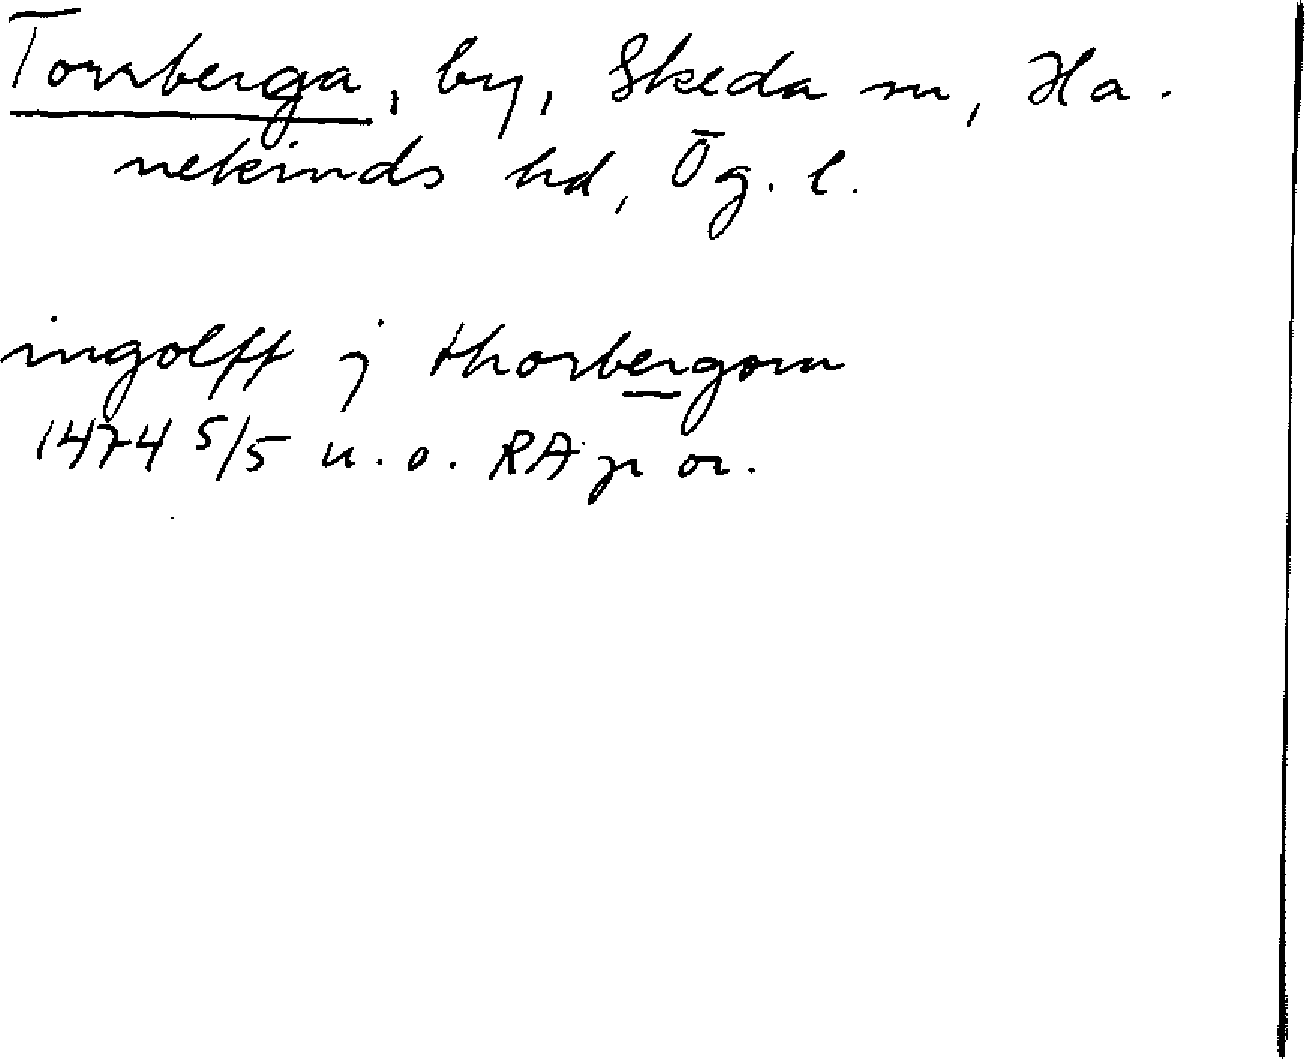 Torrberga, by, Skeda sn, Ha-
nekinds hd, Ög. l.
ingolff j thorbergom
1474 5/5 u.o. RAp or.